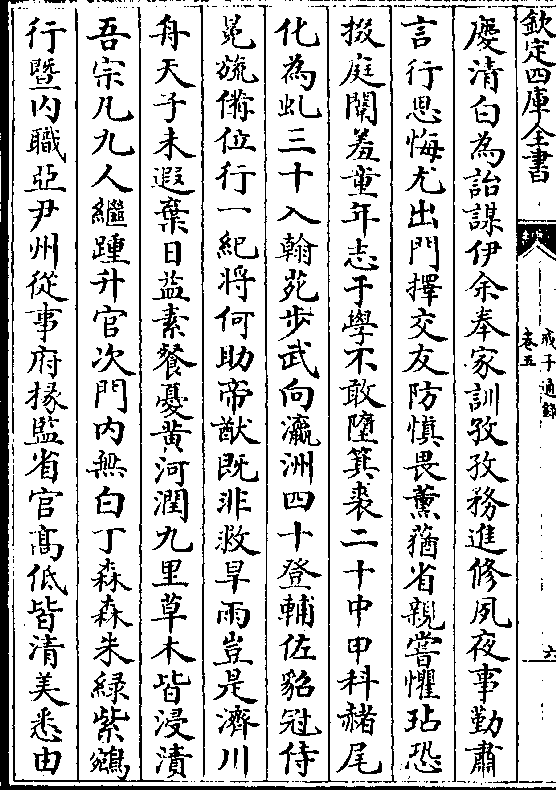 欽定四庫全書
戒子通錄
卷五
六
慶清白為詒謀伊余奉家訓孜孜務進修夙夜事勤肅
言行思悔尤出門擇交友防慎畏薰蕕省親嘗懼玷恐
掇庭闈羞童年志于學不敢墮箕裘二十中甲科赭尾
化為虬三十入翰苑步武向瀛洲四十登輔佐貂冠侍
冕旒備位行一紀將何助帝猷既非救旱雨豈是濟川
舟天子未遐棄日益素餐憂黃河潤九里草木皆浸漬
吾宗凡九人繼踵升官次門內無白丁森森朱緑紫鵷
行暨内職亞尹州從事府掾監省官高低皆清美悉由